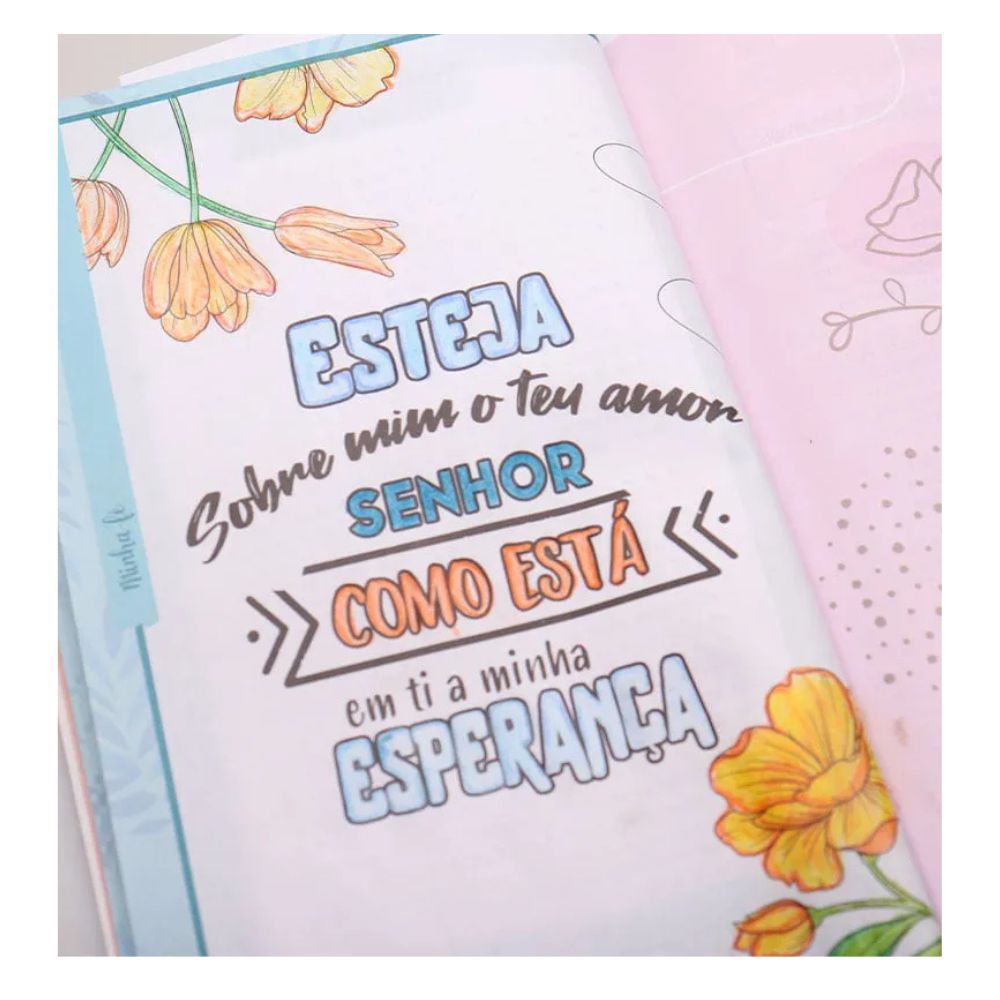 ESTEJA
Sobre mim o teu amor
SENHOR
COMO ESTÁ
em ti a minha
ESPERANÇA
Minha fé